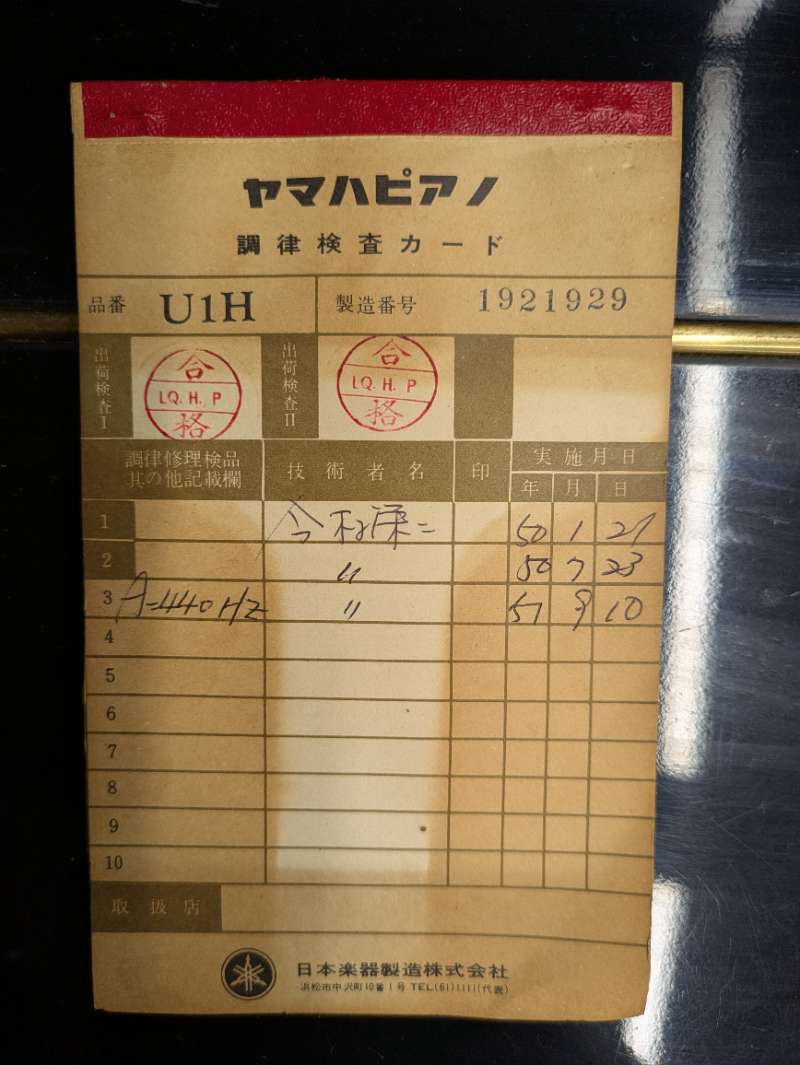 ヤマハピアノ
調律検査カード
品番 U1H 製造番号 1921929
出荷検査I 合 I.Q.H.P 格 出荷検査II 合 I.Q.H.P 格
調律修理検品其の他記載欄 技術者名 印 実施月日
年 月 日
1 今村栄二 50 1 21
2 〃 50 7 23
3 A=440HZ 〃 51 9 10
4
5
6
7
8
9
10
取扱店
日本楽器製造株式会社
浜松市中沢町10番1号 TEL(61)1111(代表)